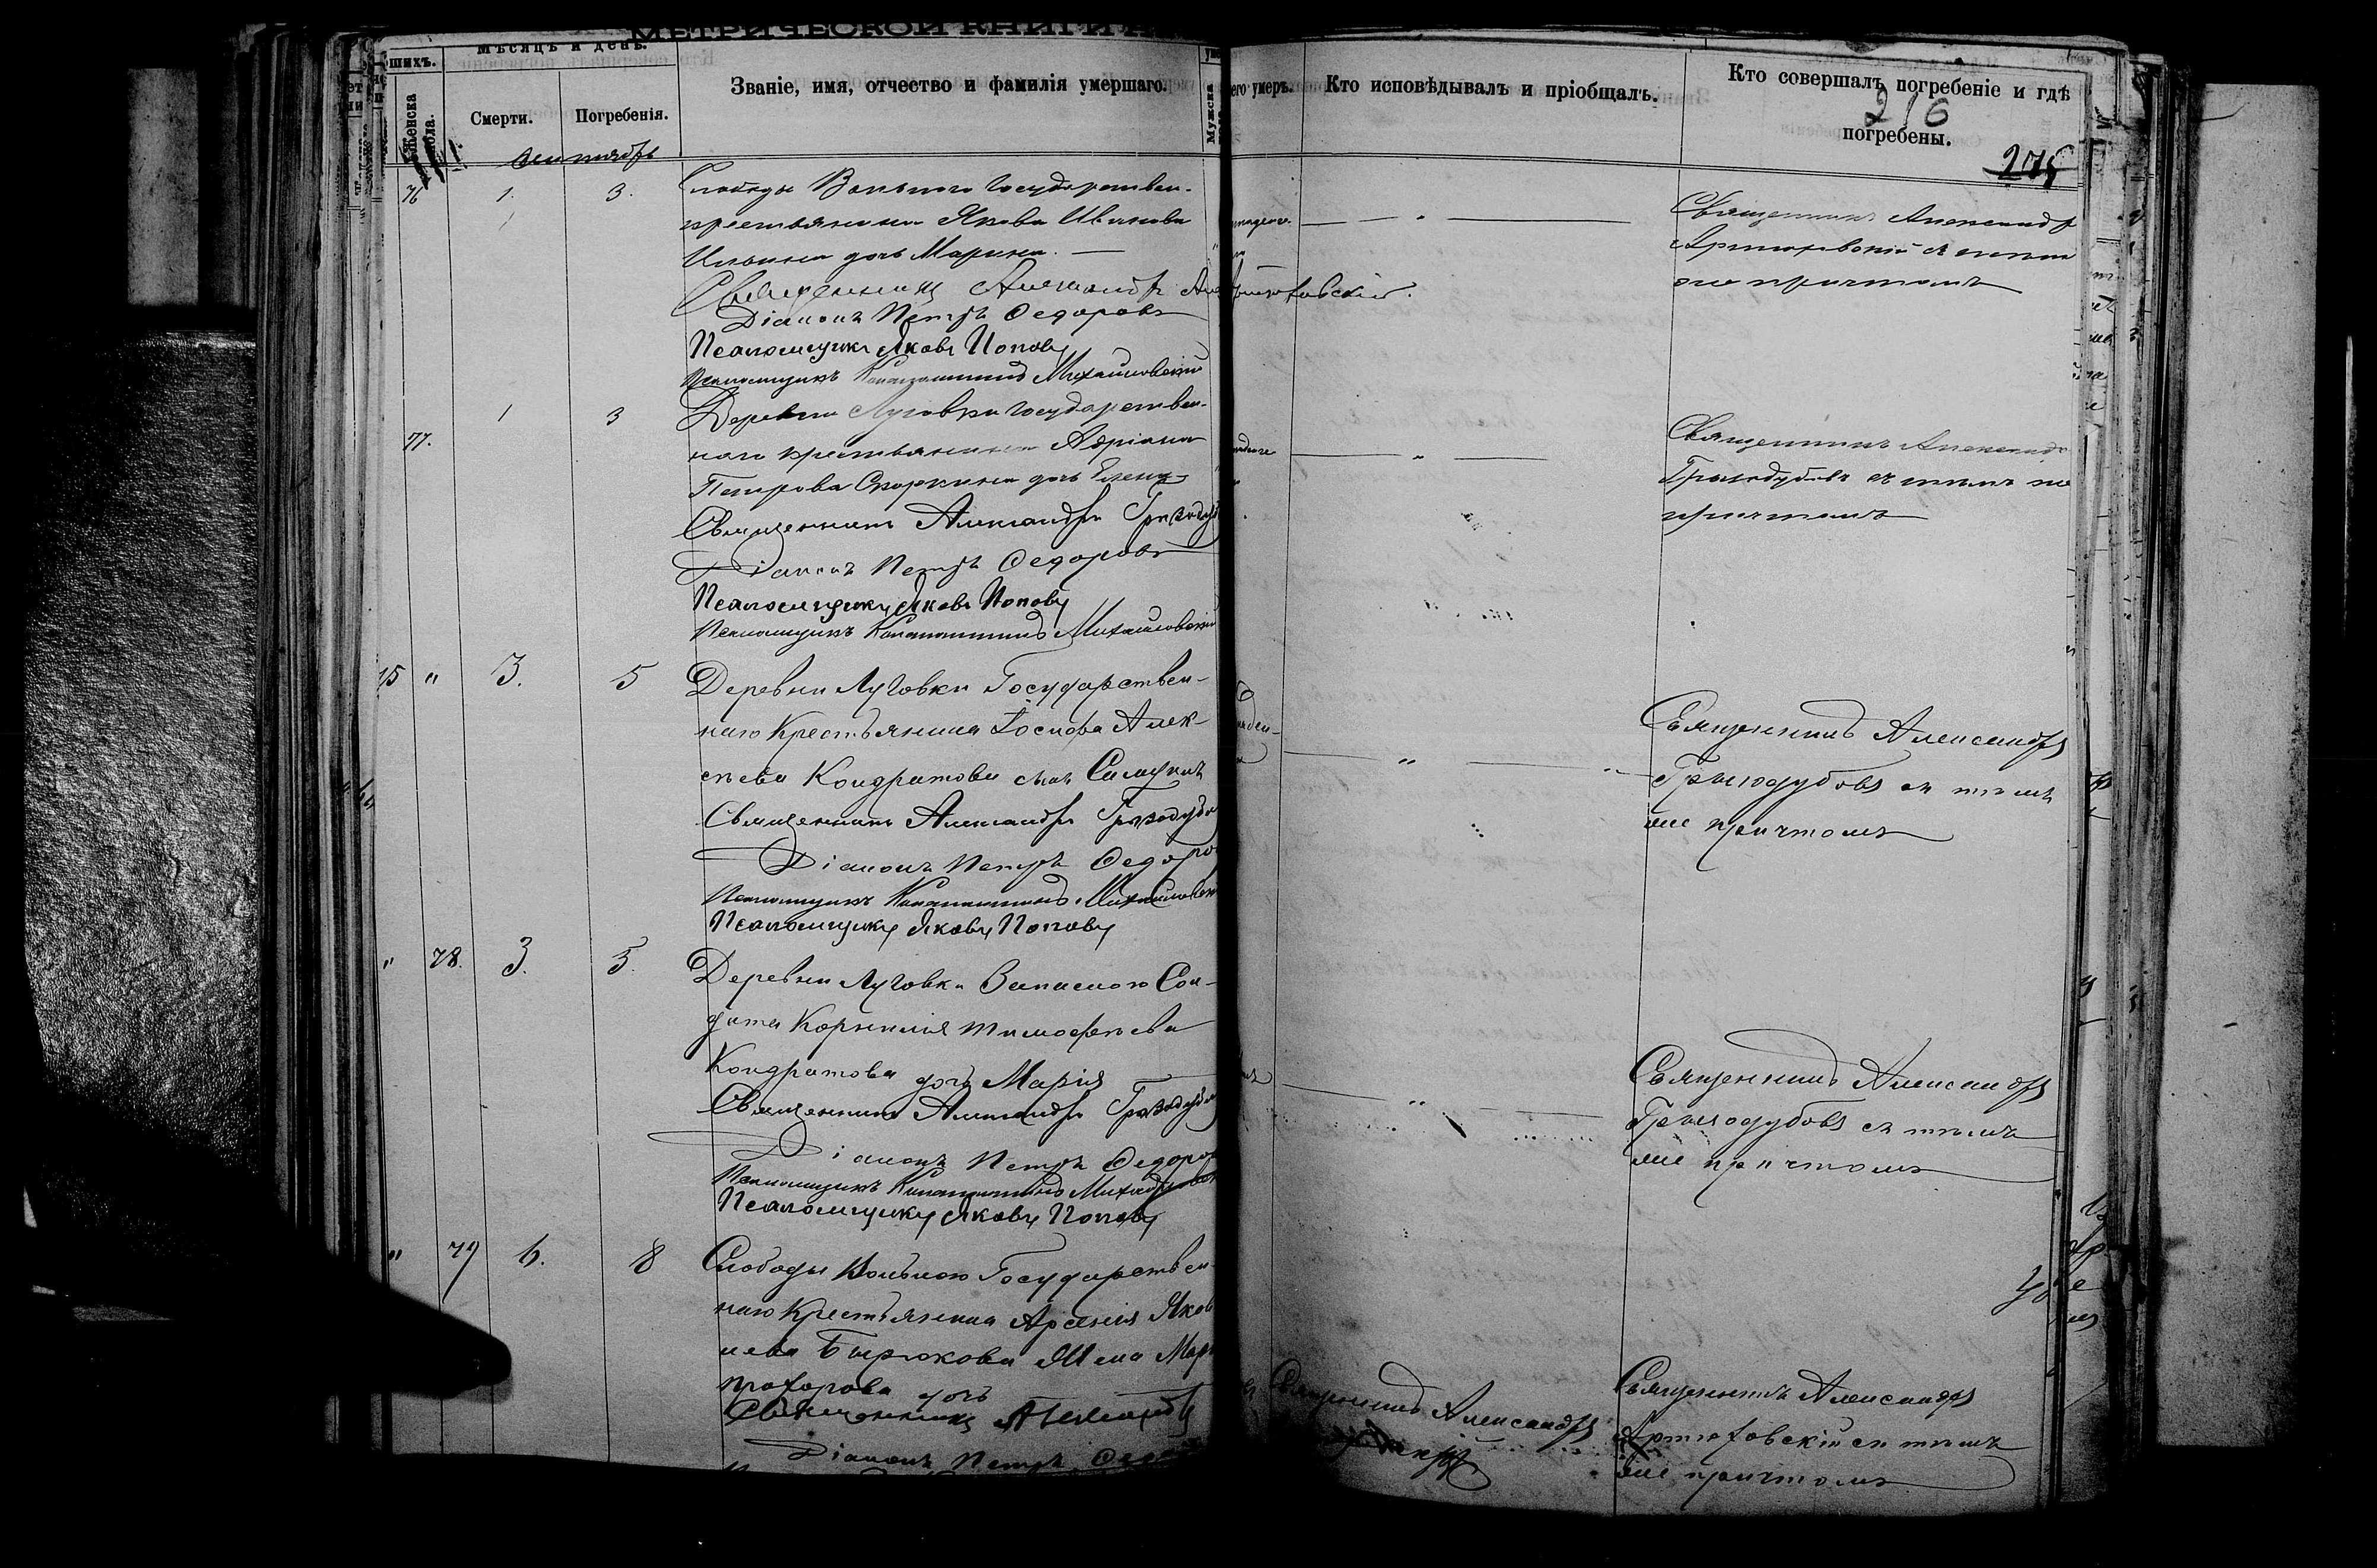 МЕТРИЧЕСКОЙ КНИГИ
Мѣсяцъ и день.
шихъ.
Женска пола.
Смерти.
Погребенія.
Званіе, имя, отчество и фамилія умершаго.
Мужска
его умеръ.
Кто исповѣдывалъ и пріобщалъ.
Кто совершалъ погребеніе и гдѣ
погребены.
216
сентябрь
76 1. 3. Слободы Вольнаго Государствен-
крестьянина Якова Иванова
Ильина дочь Марина.
Священникъ Александръ
Артюховскій съ тѣмъ
же причтомъ
Священникъ Александръ Артюховскій.
Діаконъ Петръ Федоровъ
Псаломщикъ Яковъ Поповъ
Псаломщикъ Константинъ Михайловскій
77. 1 3 Деревни Луговки Государствен-
наго крестьянина Адріана
Петрова Скоркина дочь Елена
Священникъ Александръ
Гризодубовъ съ тѣмъ же
причтомъ
Священникъ Александръ Гризодуб
Діаконъ Петръ Федоровъ
Псаломщикъ Яковъ Поповъ
Псаломщикъ Константинъ Михайловскій
75 " 3. 5 Деревни Луговки Государствен-
наго Крестьянина Іосифа Алек-
сѣева Кондратова сынъ
Священникъ Александръ
Гризодубовъ съ тѣмъ
же причтомъ
Священникъ Александръ Гризодубо
Діаконъ Петръ Федоро
Псаломщикъ Константинъ Михайловск
Псаломщикъ Яковъ Поповъ
" 78. 3. 5. Деревни Луговки Запаснаго Сол-
дата Корнилія Тимофѣева
Кондратова дочь Марія
Священникъ Александръ
Гризодубовъ съ тѣмъ
же причтомъ
Священникъ Александръ Гризодубов
Діаконъ Петръ Федоро
Псаломщикъ Константинъ Михайловск
Псаломщикъ Яковъ Поповъ
" 79 6. 8 Слободы Вольнаго Государствен-
наго Крестьянина Арсенія Яков
лева Бирюкова жена
Прохорова дочь
Священникъ Александръ
Священникъ Александръ
Артюховскій съ тѣмъ
же причтомъ
Священникъ Александръ
Діаконъ Петръ Федо